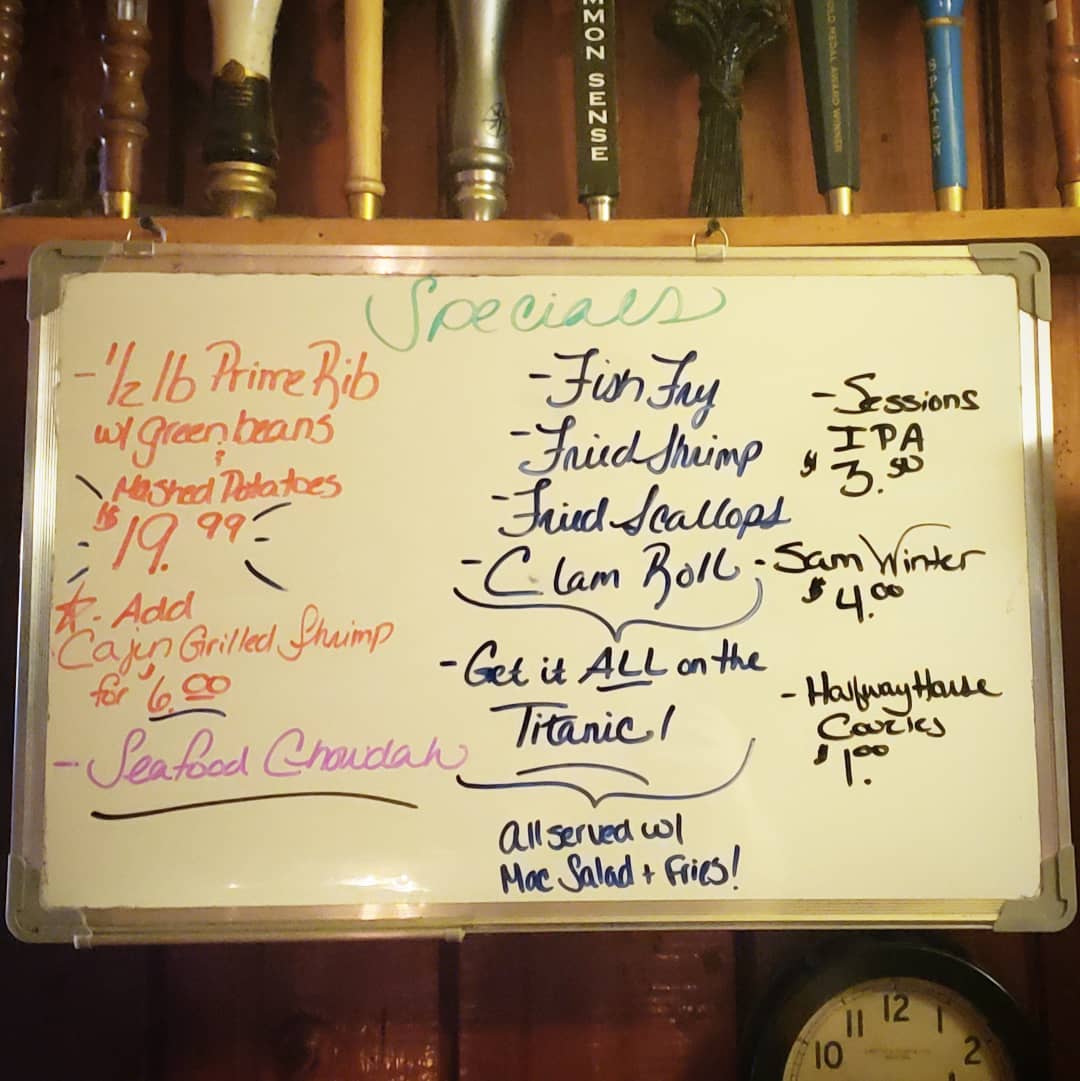 MMON SENSE
GOLD MEDAL AWARD WINNER
SPATEN
Specials
- 1/2 lb Prime Rib
w/ green beans
&
Mashed Potatoes
$19.99
☆ - Add
Cajun Grilled Shrimp
for $6.00
- Seafood Chowdah
- Fish Fry
- Fried Shrimp
- Fried Scallops
- Clam Roll
- Get it ALL on the
Titanic!
All served w/
Mac Salad + Fries!
- Sessions
IPA
$3.50
- Sam Winter
$4.00
- Halfway House
Cookies
$1.00
11 12 1
10 2